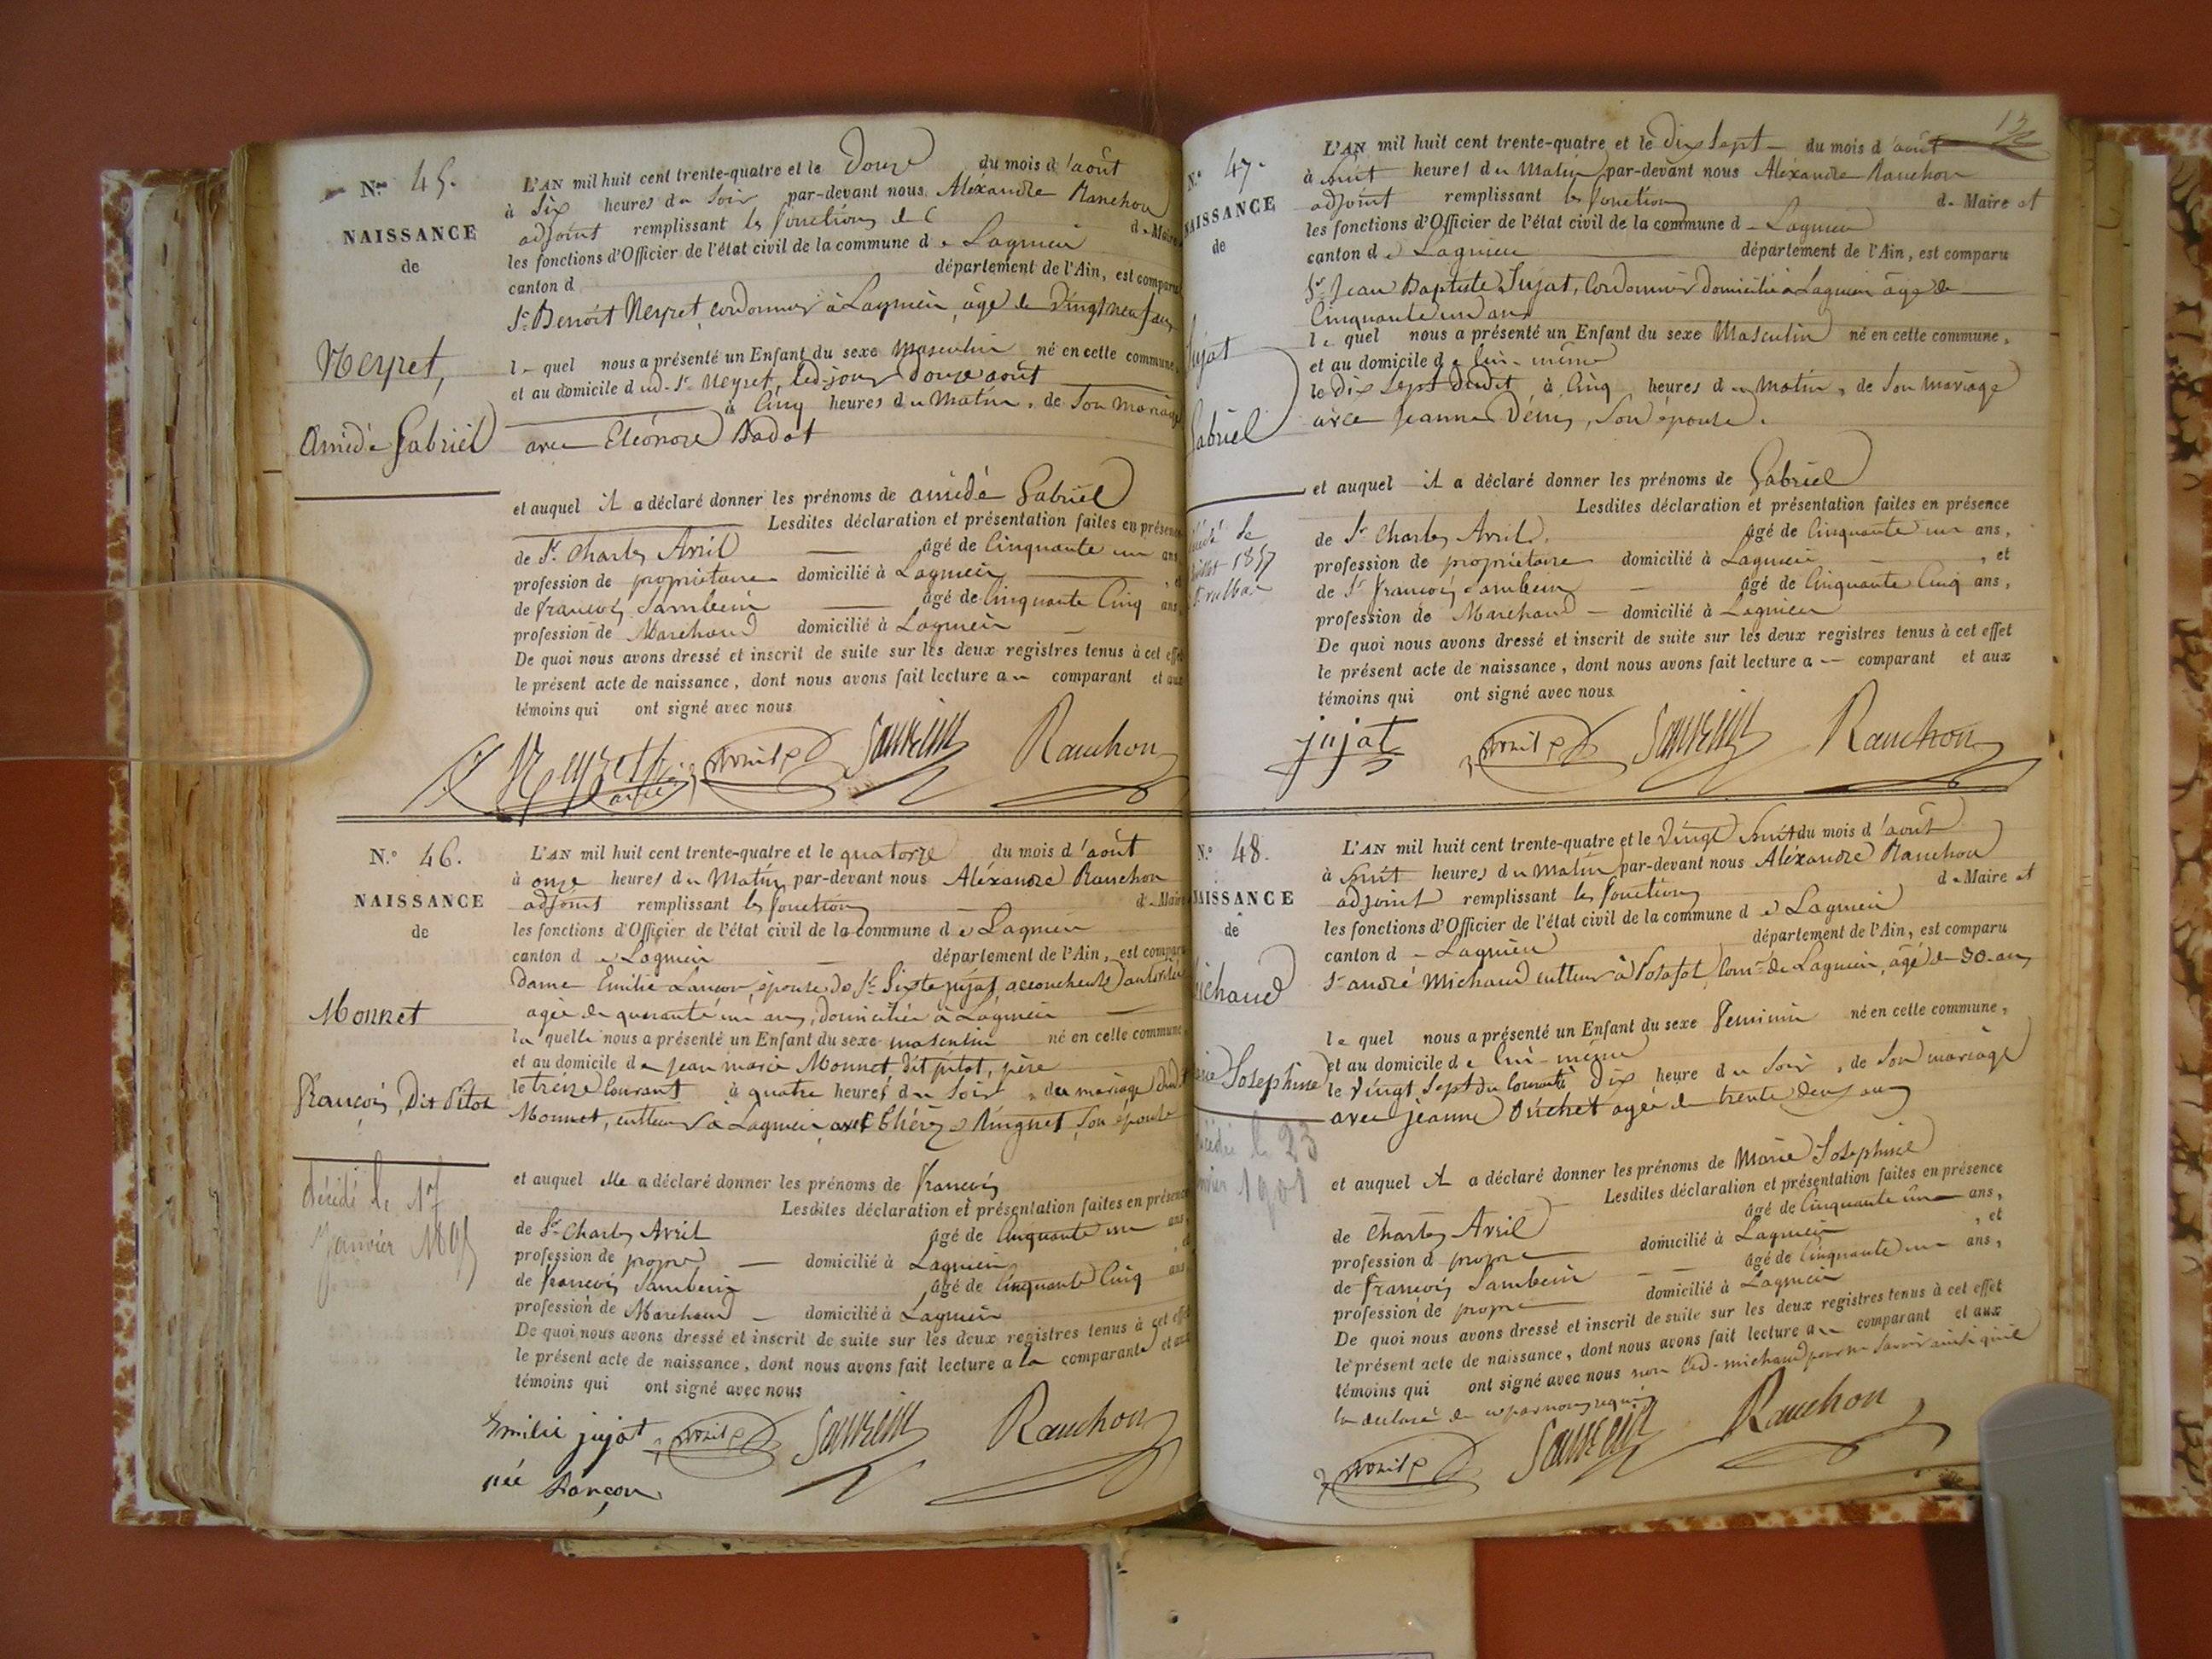 N.° 45.
NAISSANCE
de
Neyret,
Amédé Gabriel
L'AN mil huit cent trente-quatre et le Douze du mois d'août
à Six heures du Soir par-devant nous Aléxandre Ranchon
adjoint remplissant les fonctions de d. Maire
les fonctions d'Officier de l'état civil de la commune de Lagnieu
canton d département de l'Ain, est comparu
Sr. Benoît Neyret, cordonnier à Lagnieu, âgé de vingt neuf ans
le quel nous a présenté un Enfant du sexe Masculin né en cette commune,
et au domicile dud. Sr. Neyret, led. jour douze août
à Cinq heures du Matin, de Son Mariage
avec Eléonore Badot
et auquel il a déclaré donner les prénoms de amédé Gabriel
Lesdites déclaration et présentation faites en présence
de Sr. Charles Avril âgé de Cinquante un ans
profession de propriétaire domicilié à Lagnieu, et
de francois Sambein âgé de Cinquante Cinq ans
profession de Marchand domicilié à Lagnieu
De quoi nous avons dressé et inscrit de suite sur les deux registres tenus à cet effet
le présent acte de naissance, dont nous avons fait lecture au comparant et aux
témoins qui ont signé avec nous
Neyret Avril Sambein Ranchon
N.° 46.
NAISSANCE
de
Monnet
François, Dit Pitot
décédé le 17
Janvier
L'AN mil huit cent trente-quatre et le quatorze du mois d'août
à onze heures du Matin par-devant nous Aléxandre Ranchon
adjoint remplissant les fonctions d. Maire
les fonctions d'Officier de l'état civil de la commune de Lagnieu
canton de Lagnieu département de l'Ain, est comparu
Dame Emilie Lançon, épouse de Sr. Sixte jujat accoucheuse autorisée
agée de quarante un ans, domiciliée à Lagnieu
la quelle nous a présenté un Enfant du sexe masculin né en cette commune
et au domicile de Jean marie Monnet, dit pitot, père
le treize Courant à quatre heures du Soir, du mariage dud.
Monnet, cultteur à Lagnieu avec Thérèze Ninguet Son épouse
et auquel elle a déclaré donner les prénoms de francois
Lesdites déclaration et présentation faites en présence
de Sr. Charles Avril âgé de Cinquante un ans,
profession de propre domicilié à Lagnieu
de francois Sambein âgé de Cinquante Cinq ans
profession de Marchand domicilié à Lagnieu
De quoi nous avons dressé et inscrit de suite sur les deux registres tenus à cet effet
le présent acte de naissance, dont nous avons fait lecture a la comparante et aux
témoins qui ont signé avec nous
Emilie jujat Avril Sambein Ranchon
née Lançon
172
N.° 47.
NAISSANCE
de
Jujat
Gabriel
L'AN mil huit cent trente-quatre et le dix Sept du mois d'août
à huit heures du Matin par-devant nous Aléxandre Ranchon
adjoint remplissant les fonctions d. Maire et
les fonctions d'Officier de l'état civil de la commune d Lagnieu
canton de Lagnieu département de l'Ain, est comparu
Sr. Jean Baptiste Jujat, Cordonnier domicilié à Lagnieu âgé de
Cinquante un ans
le quel nous a présenté un Enfant du sexe Masculin né en cette commune,
et au domicile de lui-même
le Dix Sept dudit à Cinq heures du Matin, de Son Mariage
avec Jeanne Dény, Son épouse.
et auquel il a déclaré donner les prénoms de Gabriel
Lesdites déclaration et présentation faites en présence
de Sr. Charles Avril, âgé de Cinquante un ans,
profession de propriétaire domicilié à Lagnieu, et
de Sr. francois Sambein âgé de Cinquante Cinq ans,
profession de Marchand domicilié à Lagnieu
De quoi nous avons dressé et inscrit de suite sur les deux registres tenus à cet effet
le présent acte de naissance, dont nous avons fait lecture a comparant et aux
témoins qui ont signé avec nous
jujat Avril Sambein Ranchon
N.° 48.
NAISSANCE
de
Michaud
Marie Josephine
décédée le 23
1901
L'AN mil huit cent trente-quatre et le Vingt huit du mois d'août
à huit heures du Matin par-devant nous Aléxandre Ranchon
adjoint remplissant les fonctions d. Maire et
les fonctions d'Officier de l'état civil de la commune de Lagnieu
canton d Lagnieu département de l'Ain, est comparu
Sr. andré Michaud cultteur à Posafol Comne. de Lagnieu, agé de 30 ans
le quel nous a présenté un Enfant du sexe féminin né en cette commune,
et au domicile de lui-même
le Vingt Sept du Courant à Dix heure du Soir, de Son mariage
avec Jeanne Ouchet agée de trente deux ans
et auquel il a déclaré donner les prénoms de Marie Josephine
Lesdites déclaration et présentation faites en présence
de Charles Avril âgé de Cinquante un ans,
profession d propre domicilié à Lagnieu, et
de francois Sambein âgé de Cinquante un ans,
profession de propre domicilié à Lagnieu
De quoi nous avons dressé et inscrit de suite sur les deux registres tenus à cet effet
le présent acte de naissance, dont nous avons fait lecture au comparant et aux
témoins qui ont signé avec nous non led. michaud pour ne Savoir ainsi qu'il
la déclaré de ce par nous requis
Avril Sambein Ranchon